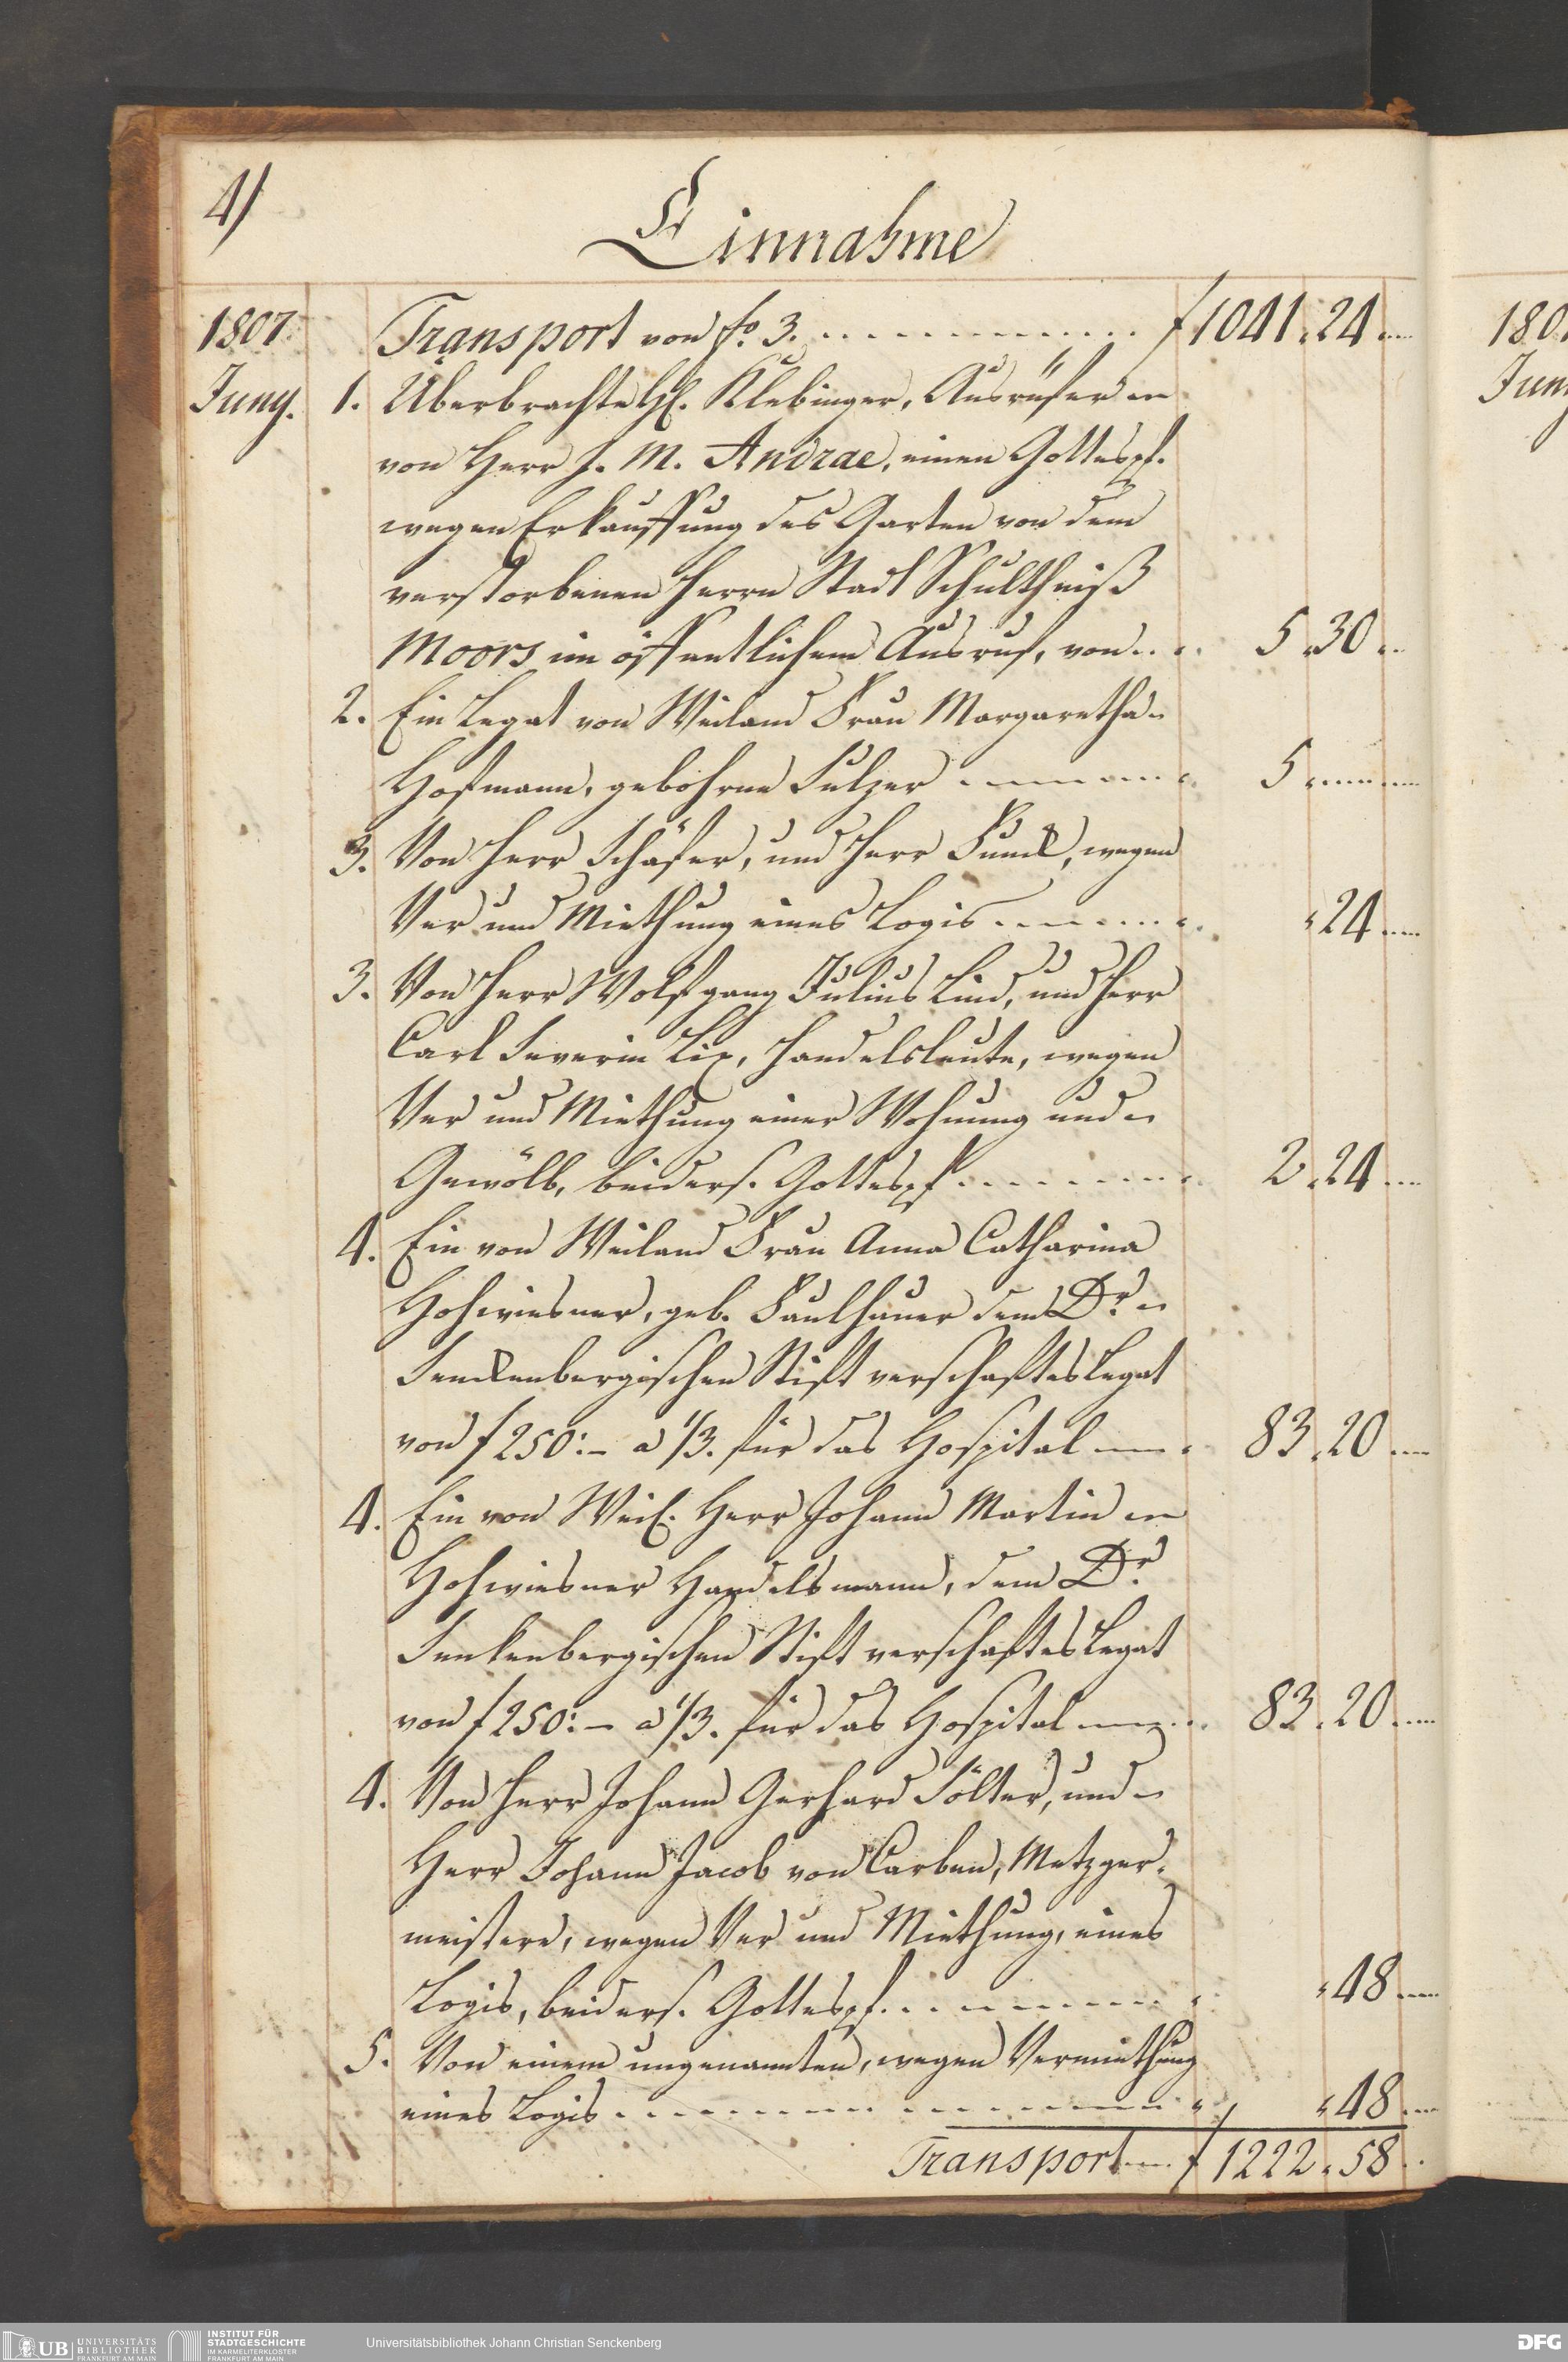 4/
Einnahme
1807. Transport von fo. 3. .............. f 1041. 24 ...
Juny. 1. Überbrachte H. Klebinger, Ausrüfer
von Herr J. M. Andrae, einen Gottespf.
wegen Erkauffung des Garten von dem
verstorbenen Herrn Stadt Schultheiß
Moors im öffentlichem Ausruf, von ... 5. 30 ..
2. Ein Legat von Weiland Frau Margaretha
Hofmann, gebohrne Sulzer ........ 5. .......
3. Von Herr Schäfer, und Herr Funck, wegen
Ver und Miethung eines Logis ........ " 24 ....
3. Von Herr Wolfgang Julius Lind, und Herr
Carl Severin Lix, Handelsleute, wegen
Ver und Miethung einer Wohnung und
Gewölb, beiders. Gottespf. ......... 2. 24 ....
4. Ein von Weiland Frau Anna Catharina
Hohwiesner, geb. Faulhauer dem Dr.
Senckenbergischen Stift verschaftes Legat
von f 250:– a 1/3. für das Hospital .... 83. 20 ....
4. Ein von Weil. Herr Johann Martin
Hohwiesner Handelsmann, dem Dr.
Senkenbergischen Stift verschaftes Legat
von f 250:– a 1/3. für das Hospital .... 83. 20 ....
4. Von Herr Johann Gerhard Sölter, und
Herr Johann Jacob von Carben, Metzger-
meistere, wegen Ver und Miethung, eines
Logis, beiders. Gottespf. ......... " 48 ....
5. Von einem ungenannten, wegen Vermiethung
eines Logis .................. " 48 ....
Transport .... f 1222. 58 ..
180
Jun
UB UNIVERSITÄTS BIBLIOTHEK FRANKFURT AM MAIN
INSTITUT FÜR STADTGESCHICHTE IM KARMELITERKLOSTER FRANKFURT AM MAIN
Universitätsbibliothek Johann Christian Senckenberg
DFG